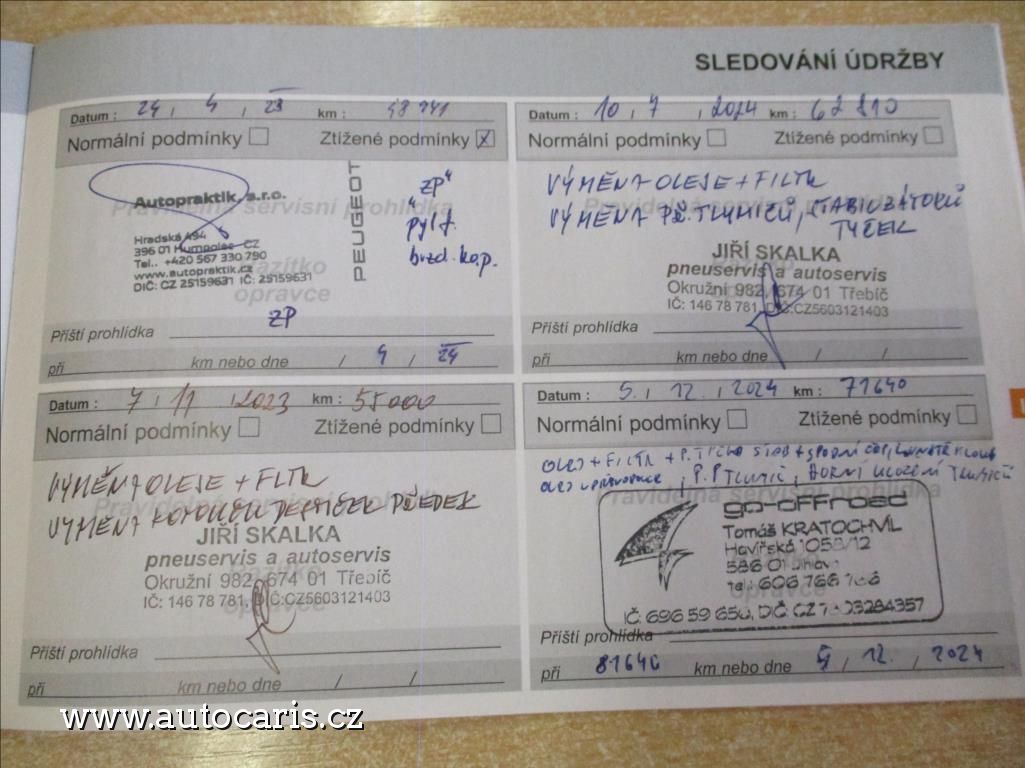 SLEDOVÁNÍ ÚDRŽBY
Datum : 24 , 4 , 23 km : 48 941
Normální podmínky Ztížené podmínky x
Pravidelná servisní prohlídka
Autopraktik, s.r.o.
Hradská 494
396 01 Humpolec CZ
Tel.: +420 567 330 790
www.autopraktik.cz
DIČ: CZ 25159631 IČ: 25159631
PEUGEOT
"ZP"
pylf.
brzd. kap.
Razítko
opravce
ZP
Příští prohlídka
při km nebo dne / 4 / 24
Datum : 10 , 7 , 2024 km : 62 810
Normální podmínky Ztížené podmínky
VÝMĚNA OLEJE + FILTR
VÝMĚNA PŘ. TLUMIČŮ, STABILIZÁTORŮ
TYČEK
JIŘÍ SKALKA
pneuservis a autoservis
Okružní 982, 674 01 Třebíč
IČ: 146 78 781, DIČ:CZ5603121403
Příští prohlídka
při km nebo dne / /
Datum : 7 , 11 , 2023 km : 55000
Normální podmínky Ztížené podmínky
VÝMĚNA OLEJE + FILTR
VÝMĚNA KOTOUČŮ DESTIČEK PŘEDEK
Pravidelná servisní prohlídka
JIŘÍ SKALKA
pneuservis a autoservis
Okružní 982, 674 01 Třebíč
IČ: 146 78 781, DIČ:CZ5603121403
Razítko
opravce
Příští prohlídka
při km nebo dne / /
Datum : 5. , 12. , 2024 km : 71640
Normální podmínky Ztížené podmínky
OLEJ + FILTR + P. TYČKA STAB + SPODNÍ ČEP,
OLEJ , P.P TLUMIČ, HORNÍ ULOŽENÍ TLUMIČŮ
Pravidelná servisní prohlídka
go-offroad
Tomáš KRATOCHVÍL
Havířská 1058/12
586 01 Jihlava
tel.: 606 766
IČ: 696 59 656, DIČ: CZ
Příští prohlídka
při 81640 km nebo dne 5 / 12. / 2024
www.autocaris.cz